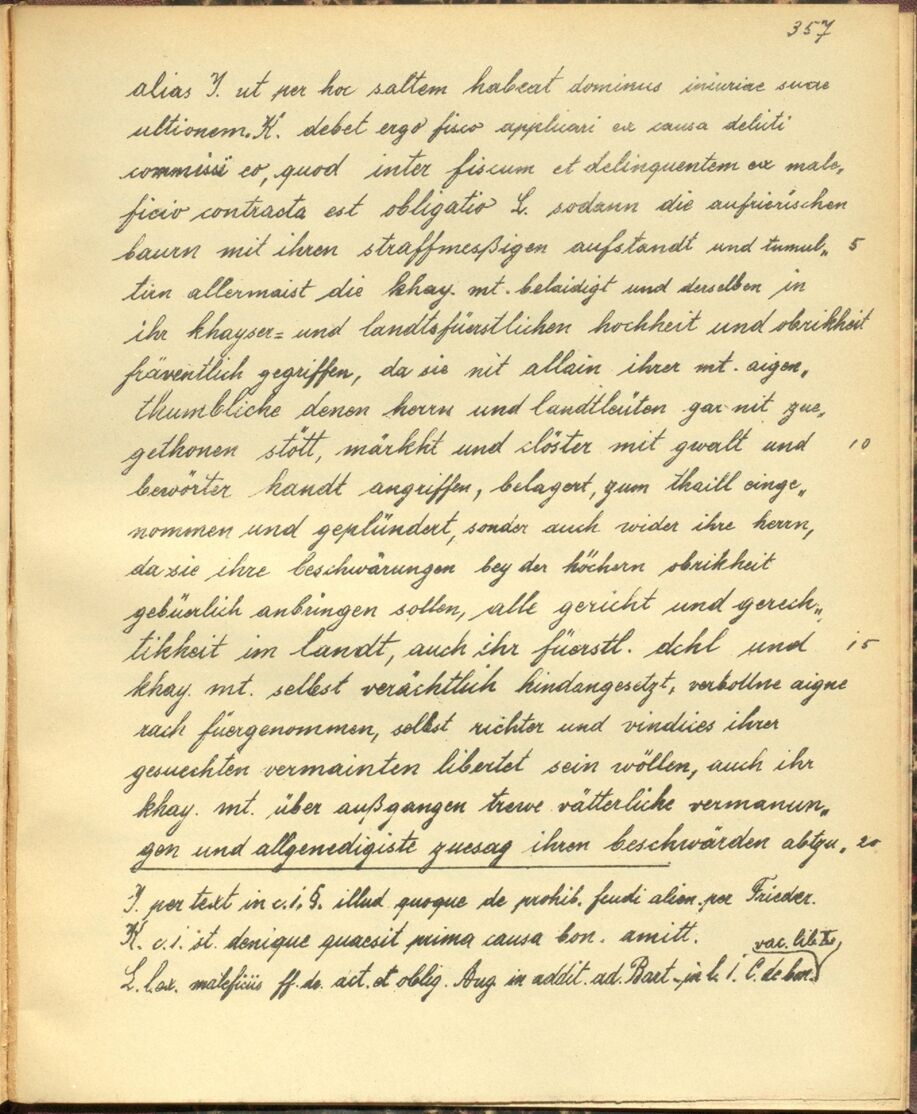 357
alias J. ut per hoc saltem habeat dominus iniuriae suae
ultionem. K. debet ergo fisco applicari ex causa delicti
commissi eo, quod inter fiscum et delinquentem ex male„
ficio contracta est obligatio L. sodann die aufrierischen
baurn mit ihren straffmesßigen aufstandt und tumul„ 5
tirn allermaist die khay. mt. belaidigt und derselben in
ihr khayser= und landtsfüerstlichen hochheit und obrikheit
fräventlich gegriffen, da sie nit allain ihrer mt. aigen„
thumbliche denen herrn und landtleüten gar nit zue„
gethonen stött, märkht und clöster mit gwalt und 10
bewörter handt angriffen, belagert, zum thaill einge„
nommen und geplündert, sonder auch wider ihre herrn,
da sie ihre beschwärungen bey der höchern obrikheit
gebüerlich anbringen sollen, alle gericht und gerech„
tikheit im landt, auch ihr füerstl. dchl und 15
khay. mt. selbst verächtlich hindangesetzt, verbottne aigne
rach füergenommen, selbst richter und vindices ihrer
gesuechten vermainten libertet sein wöllen, auch ihr
khay. mt. über außgangen trewe vätterliche vermanun„
gen und allgenedigiste zuesag ihren beschwärden abtzu„ 20
J. per text in c. i. §. illud quoque de prohib. feudi alien. per Frieder.
K. c. i. st. denique quaesit prima causa bon. amitt.
vac. lib. X.
L. l. ex. maleficiis ff. de. act. et oblig. Aug. in addit. ad. Bart. in l. i. C. de bon.